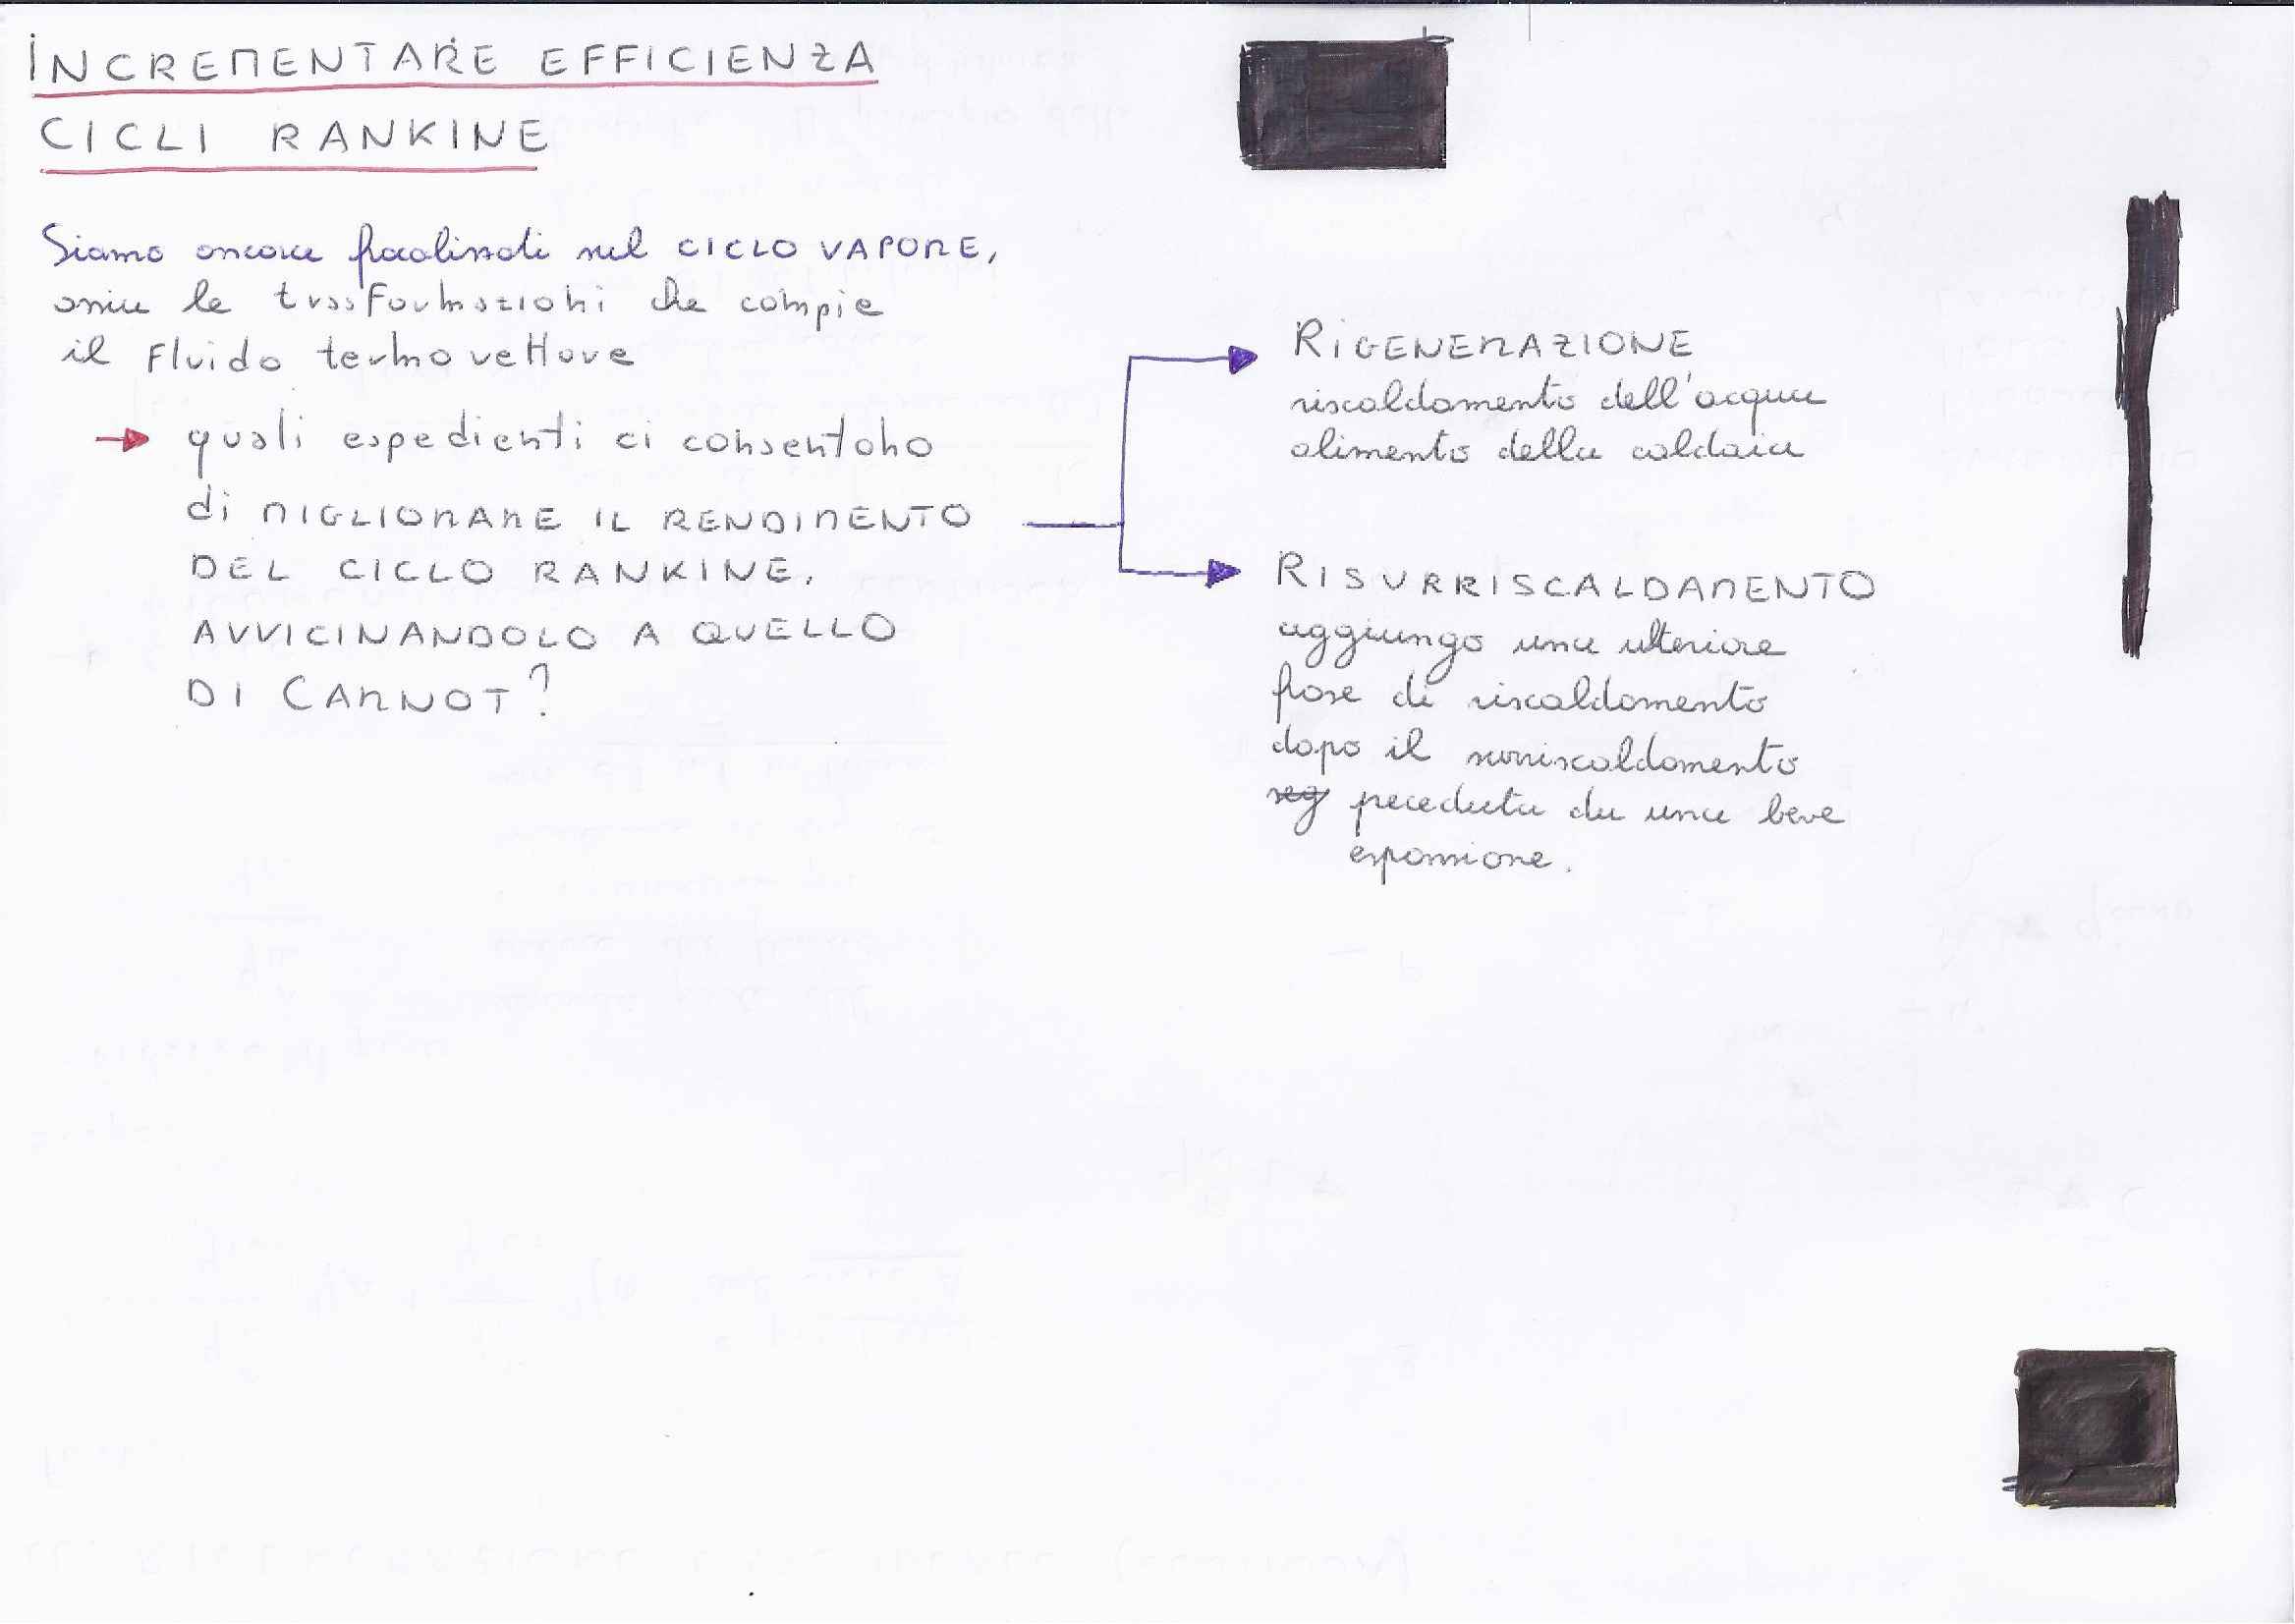 INCREMENTARE EFFICIENZA
CICLI RANKINE
Siamo ancora focalizzati nel CICLO VAPORE,
ossia le trasformazioni che compie
il fluido termovettore
→ quali espedienti ci consentono
di MIGLIORARE IL RENDIMENTO
DEL CICLO RANKINE,
AVVICINANDOLO A QUELLO
DI CARNOT?
RIGENERAZIONE
riscaldamento dell'acqua
alimento della caldaia
RISURRISCALDAMENTO
aggiungo una ulteriore
fase di riscaldamento
dopo il surriscaldamento
seg peceduta da una beve
espansione.